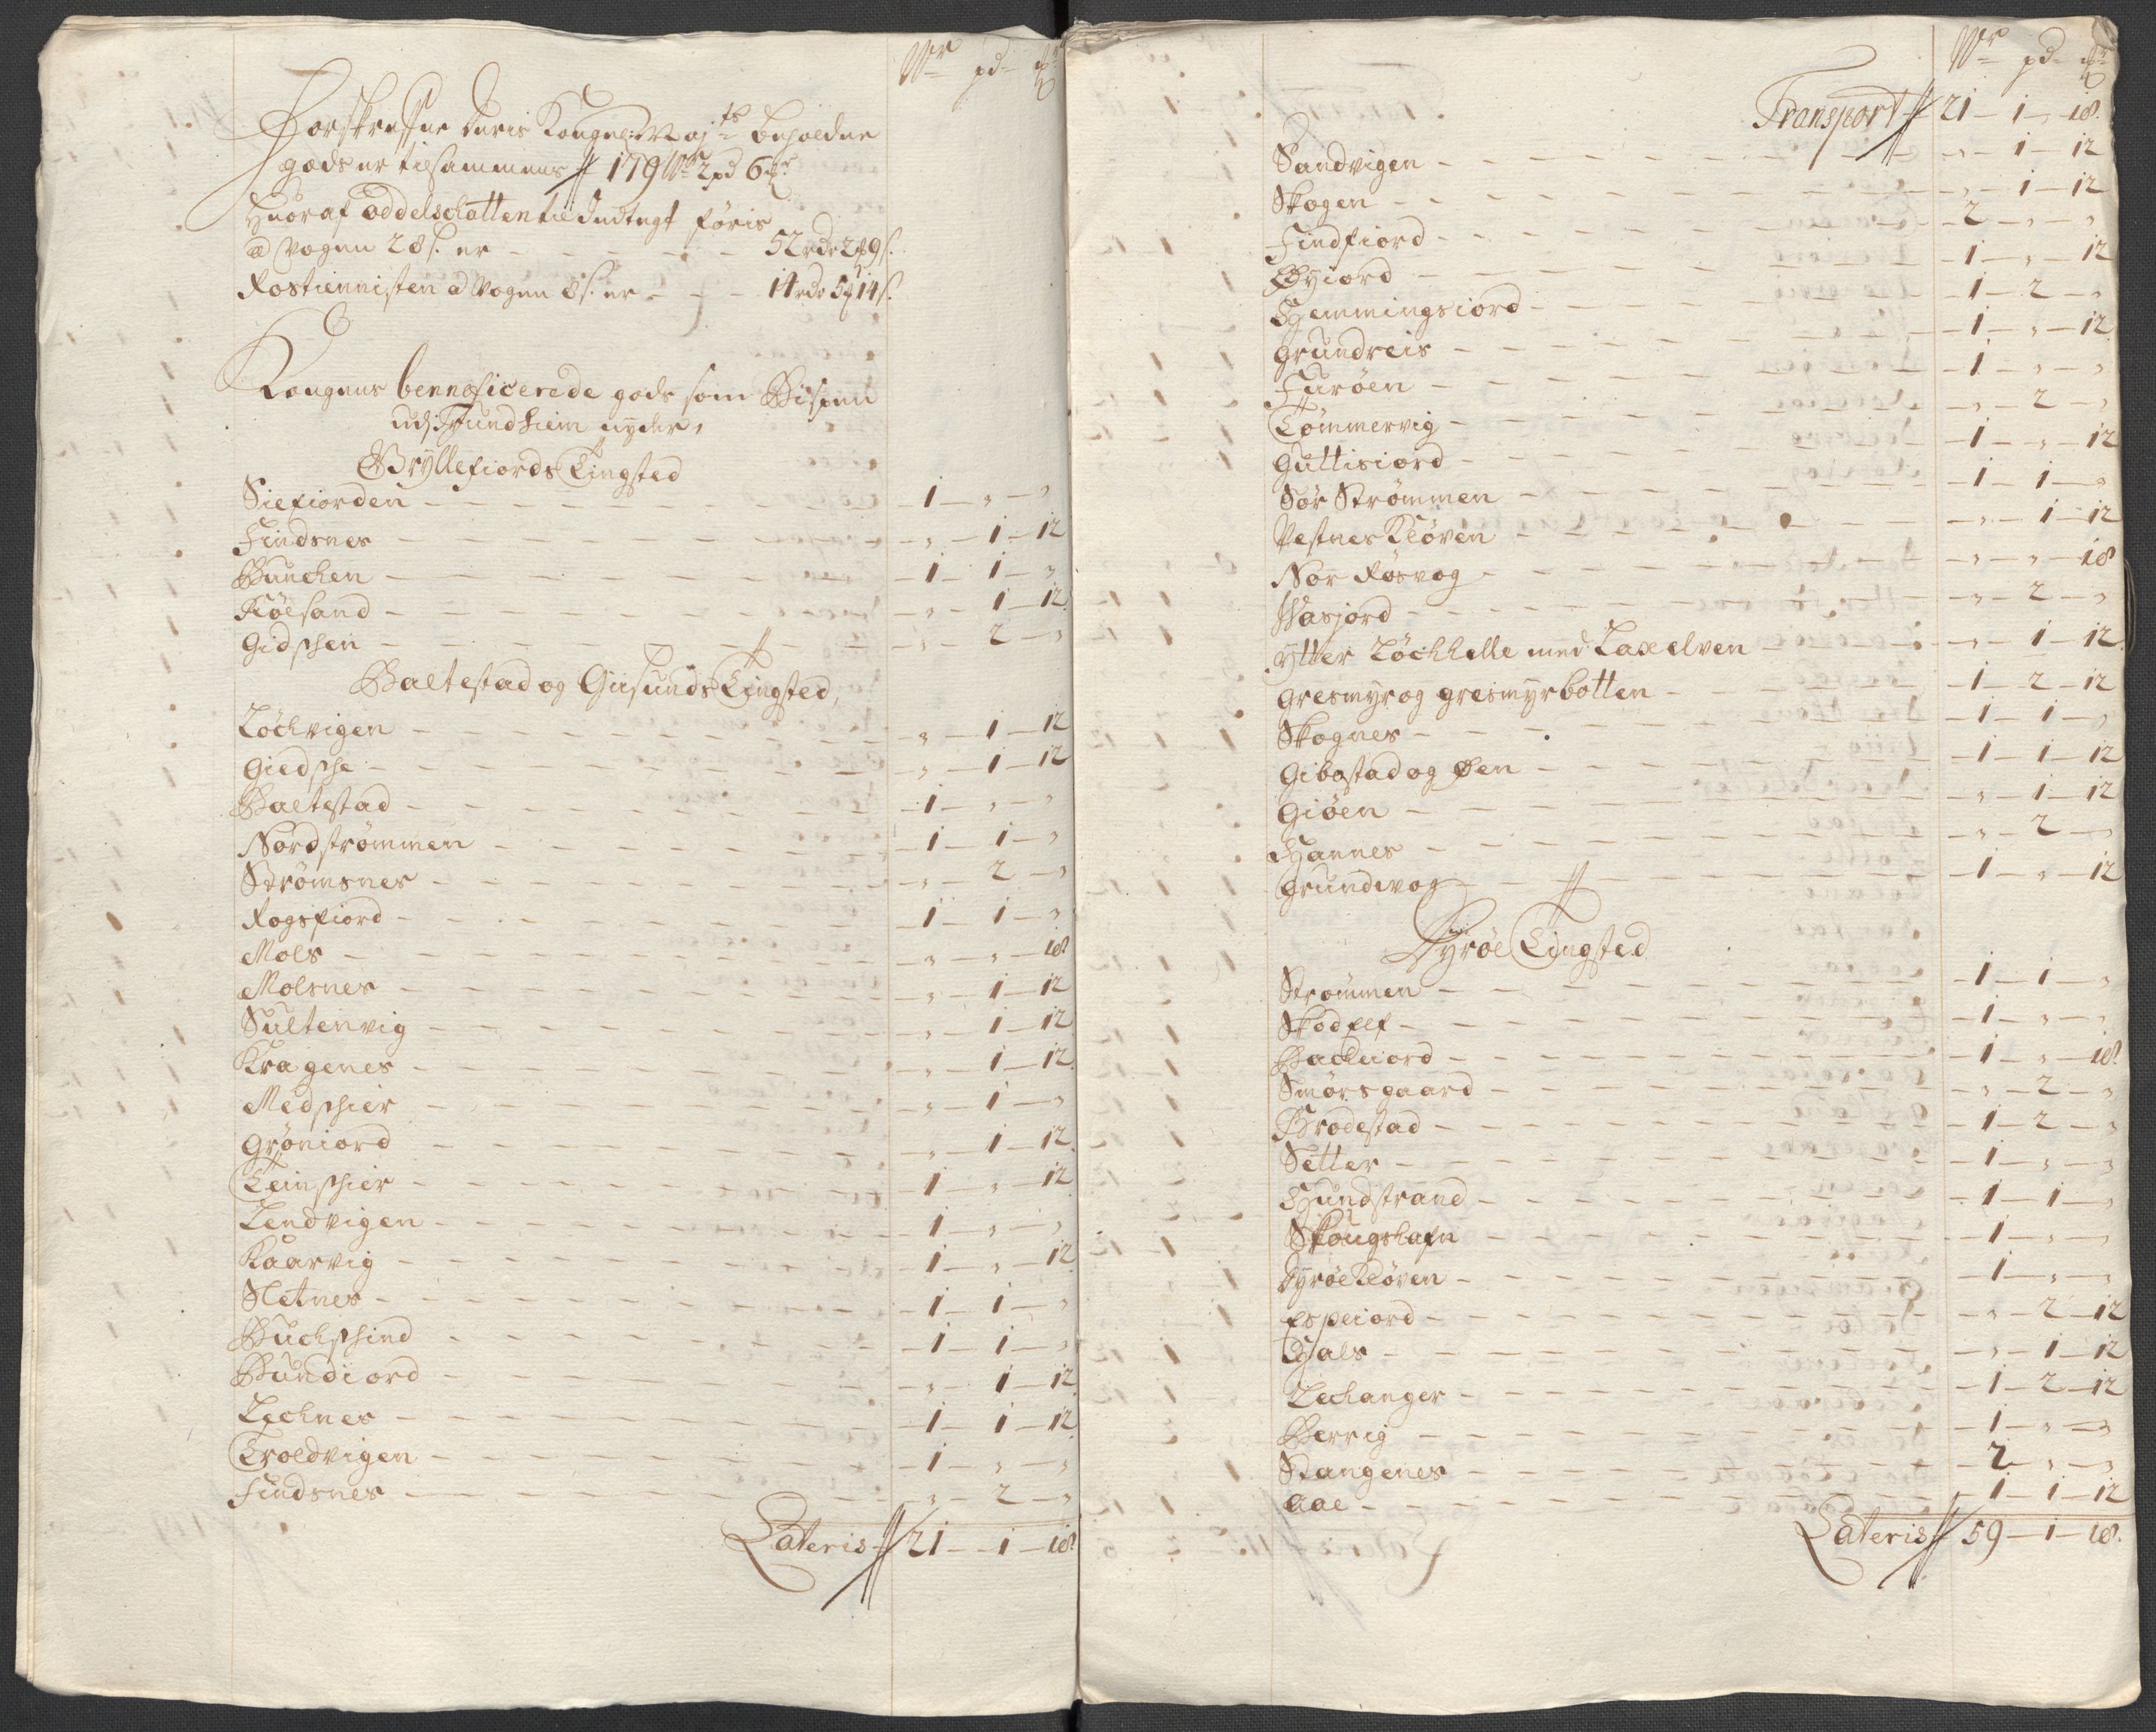 Wr pd
Forskrefne deris Kongel: Maj:ts beholdne
gods er tilsammens // 179 W 2 pd 6
Huoraf oddelschatten til Indtegt føris
a Vogen 28 s. er - - - - 52 rdr 2 9 s.
Rostiennisten a Vogen 8 s. er - - - 14 rdr 5 14 s.
Kongens beneficerede gods som Bispen
udj Trundhiem nyder,
Gryllefiords Tingsted
Siefiorden - 1 - „ - „
Findsnes - „ - 1 - 12
Bunchen - 1 - 1 - „
Kiølsand - „ - 1 - 12
Gidschen - „ - 2 - „
Baltestad og Giisunds Tingsted,
Løchvigen - „ - 1 - 12
Giedsche - „ - 1 - 12
Baltestad - 1 - „ - „
Nordstrømmen - 1 - 1 - „
Strømsnes - „ - 2 - „
Rogsfiord - 1 - 1 - „
Mols - „ - „ - 18
Molsnes - „ - 1 - 12
Sultenvig - „ - 1 - 12
Kragenes - „ - 1 - 12
Medschier - „ - 1 - „
Grøniord - „ - 1 - 12
Teinschier - 1 - „ - 12
Lendvigen - 1 - „ - „
Kaarvig - 1 - „ - 12
Sletnes - 1 - 1 - „
Buchschind - 1 - 1 - „
Bundiord - „ - 1 - 12
Lechnes - 1 - 1 - 12
Troldvigen - 1 - „ - „
Findsnes - „ - 2 - „
Lateris // 21 - 1 - 18
Wr pd
Transport // 21 - 1 - 18.
Sandvigen - „ - 1 - 12
Skogen - „ - 1 - 12
Findfiord - 2 - „ - „
Øyiord - 1 - „ - 12
Hemmingsiord - 1 - 2 - „
Grundreis - 1 - „ - 12
Furøen - 1 - „ - „
Tømmervig - „ - 2 - „
Guttisiord - 1 - „ - 12
Sør Strømmen - 1 - 1 - „
Vestnes Kløven - „ - 1 - 12
Nor Røsvog - „ - „ - 18
Wasjord - „ - 2 - „
Ytter Løchhelle med Laxelven - „ - 1 - 12
Gresmyr og Gresmyrbotten - 1 - 2 - 12
Skognes - 1 - 1 - „
Gibostad og Øen - 1 - 1 - 12
Giøen - „ - 1 - 12
Hannes - „ - 2 - „
Grundevog - 1 - „ - 12
Dyrøe Tingsted
Strømmen - 1 - 1 - „
Skødelf - 1 - „ - „
Bacheiord - 1 - „ - 18
Smørsgaard - „ - 2 - „
Brødestad - 1 - 2 - „
Setter - 1 - „ - „
Hundstrand - 1 - 1 - „
Skougshafn - 1 - „ - „
Dyrøe Kløven - 1 - „ - „
Espeiord - „ - 2 - 12
Hals - „ - 1 - 12
Lechanger - 1 - 2 - 12
Berrig - 1 - „ - „
Stangenes - 2 - „ - „
Aae - 1 - 1 - 12
Lateris // 59 - 1 - 18.